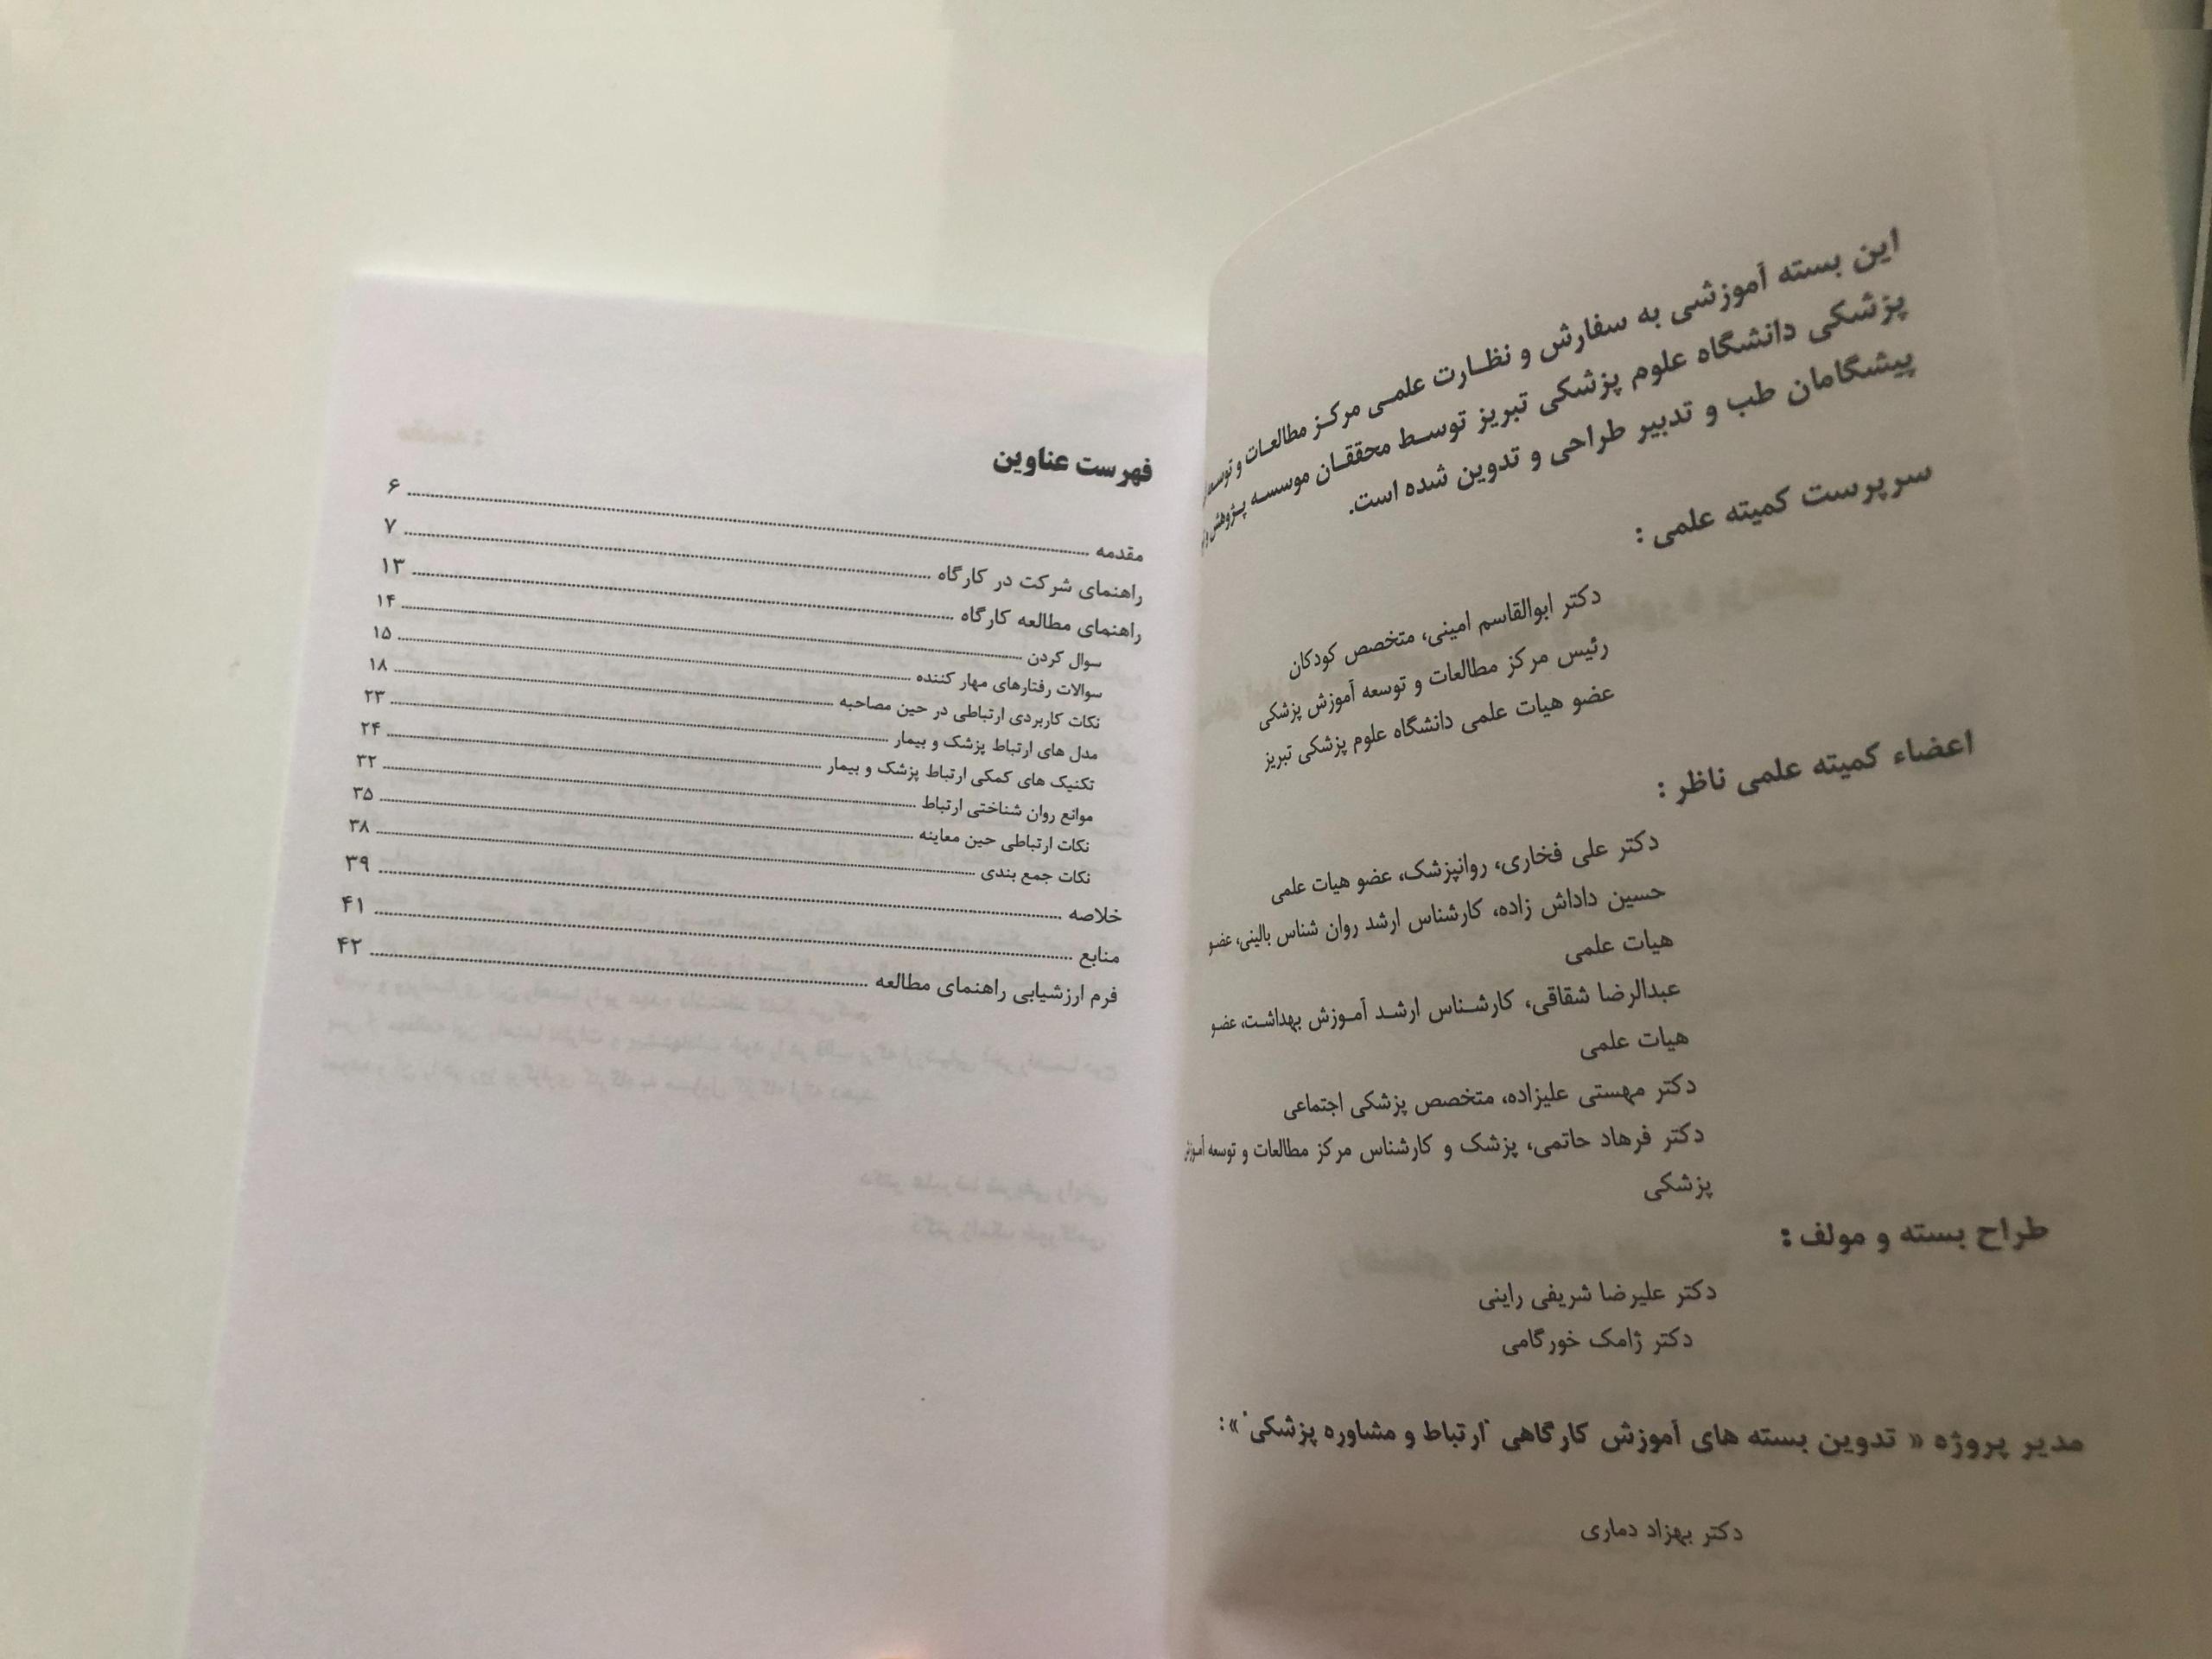 این بسته آموزشی به سفارش و نظارت علمی مرکز مطالعات و توسعه
پزشکی دانشگاه علوم پزشکی تبریز توسط محققان موسسه پژوهش
پیشگامان طب و تدبیر طراحی و تدوین شده است.
سرپرست کمیته علمی :
دکتر ابوالقاسم امینی، متخصص کودکان
رئیس مرکز مطالعات و توسعه آموزش پزشکی
عضو هیات علمی دانشگاه علوم پزشکی تبریز
اعضاء کمیته علمی ناظر :
دکتر علی فخاری، روانپزشک، عضو هیات علمی
حسین داداش زاده، کارشناس ارشد روان شناس بالینی، عضو
هیات علمی
عبدالرضا شقاقی، کارشناس ارشد آموزش بهداشت، عضو
هیات علمی
دکتر مهستی علیزاده، متخصص پزشکی اجتماعی
دکتر فرهاد حاتمی، پزشک و کارشناس مرکز مطالعات و توسعه آموزش
پزشکی
طراح بسته و مولف :
دکتر علیرضا شریفی راینی
دکتر ژامک خورگامی
مدیر پروژه « تدوین بسته های آموزش کارگاهی "ارتباط و مشاوره پزشکی" »:
دکتر بهزاد دماری
فهرست عناوین
مقدمه ........ ۶
راهنمای شرکت در کارگاه ........ ۷
راهنمای مطالعه کارگاه ........ ۱۳
سوال کردن ........ ۱۴
سوالات رفتارهای مهار کننده ........ ۱۵
نکات کاربردی ارتباطی در حین مصاحبه ........ ۱۸
مدل های ارتباط پزشک و بیمار ........ ۲۳
تکنیک های کمکی ارتباط پزشک و بیمار ........ ۲۴
موانع روان شناختی ارتباط ........ ۳۲
نکات ارتباطی حین معاینه ........ ۳۵
نکات جمع بندی ........ ۳۸
خلاصه ........ ۳۹
منابع ........ ۴۱
فرم ارزشیابی راهنمای مطالعه ........ ۴۲